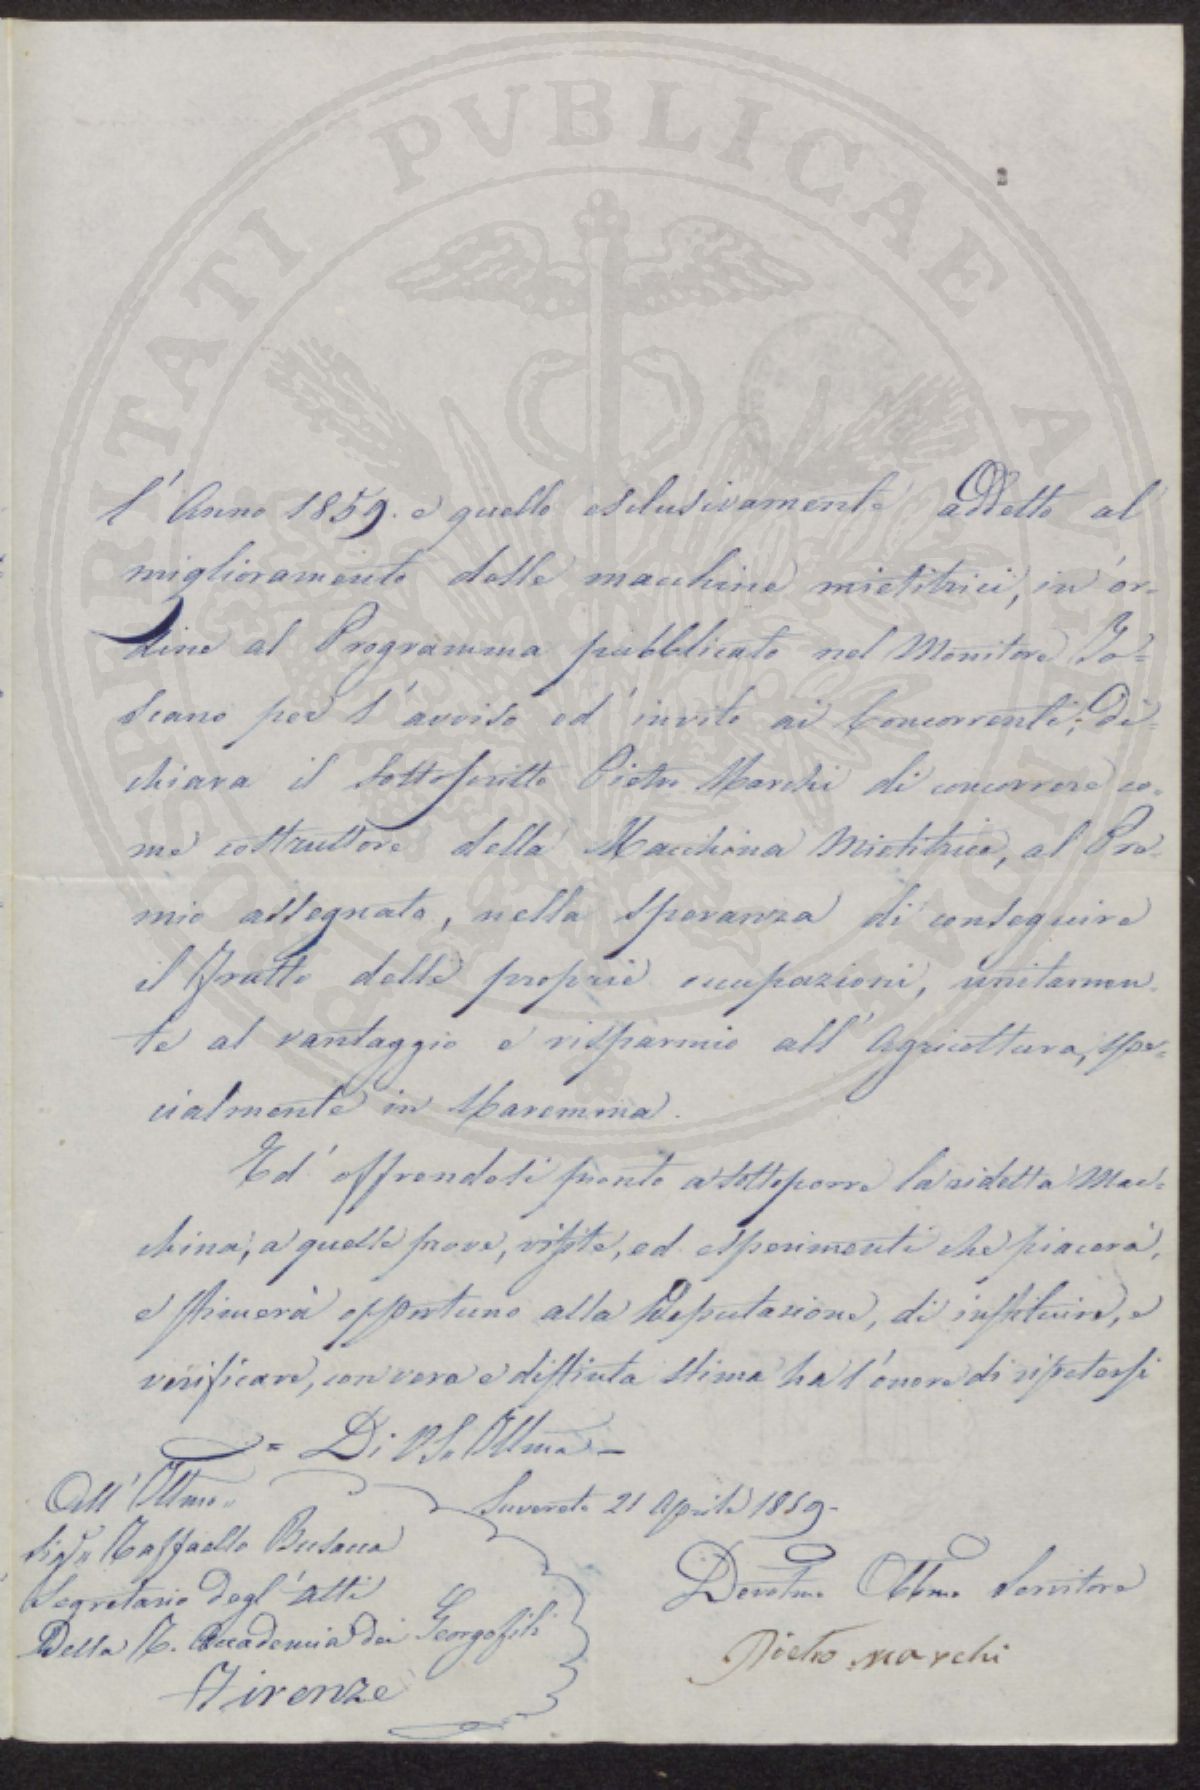 PROSPERITATI PVBLICAE AVGENDAE
l'Anno 1859. e quello esclusivamente addetto al
miglioramento delle macchine mietitrici, in or-
dine al Programma pubblicato nel Monitore To-
scano per l'avviso ed' invito ai Concorrenti; Di-
chiara il Sottoscritto Pietro Marchi di concorrere co-
me costruttore della Macchina Mietitrice, al Pre-
mio assegnato, nella speranza di conseguire
il Frutto delle proprie occupazioni, unitamen-
te al vantaggio e risparmio all'Agricoltura, spe-
cialmente in Maremma.
Ed' offrendosi pronto a sottoporre la sidetta Mac-
china, a quelle prove, visite, ed esperimenti che piacerà,
e stimerà opportuno alla Deputazione, di instituire, e
verificare, con vera e distinta stima ha l'onore di ripetersi
= Di V. S. Illma -
All' Illmo
Suvereto 21 Aprile 1859-
Sigr. Raffaello Busacca
Segretario degl' Atti
Della R. Accademia dei Georgofili
Firenze
Devotmo Obbmo Servitore
Pietro Marchi